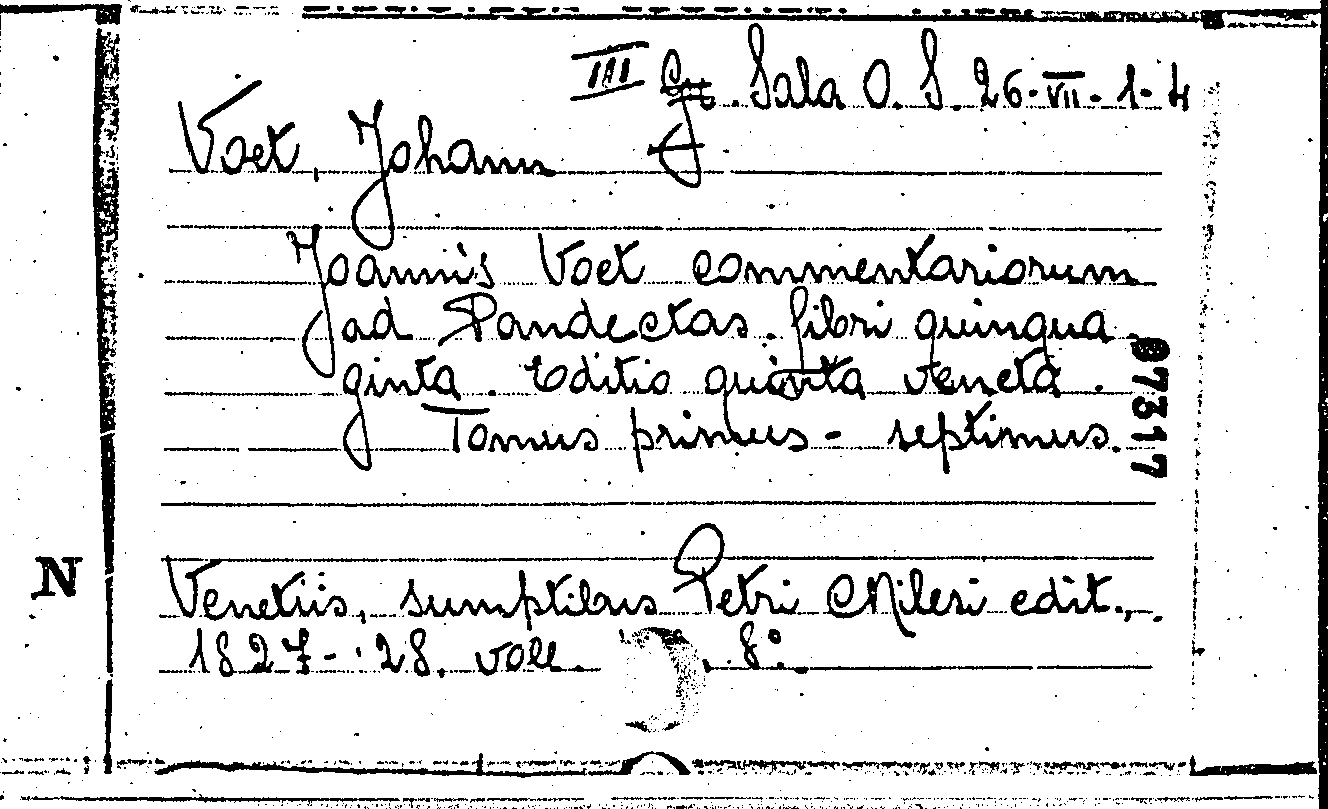 III Sala O. S. 26-VII-1-4
Voet, Johann
Joannis Voet commentariorum
ad Pandectas. libri quinqua
ginta. Editio quinta veneta.
Tomus primus - septimus.
07317
N
Venetiis, sumptibus Petri Milesi edit.,
1827-'28. voll. 8°.